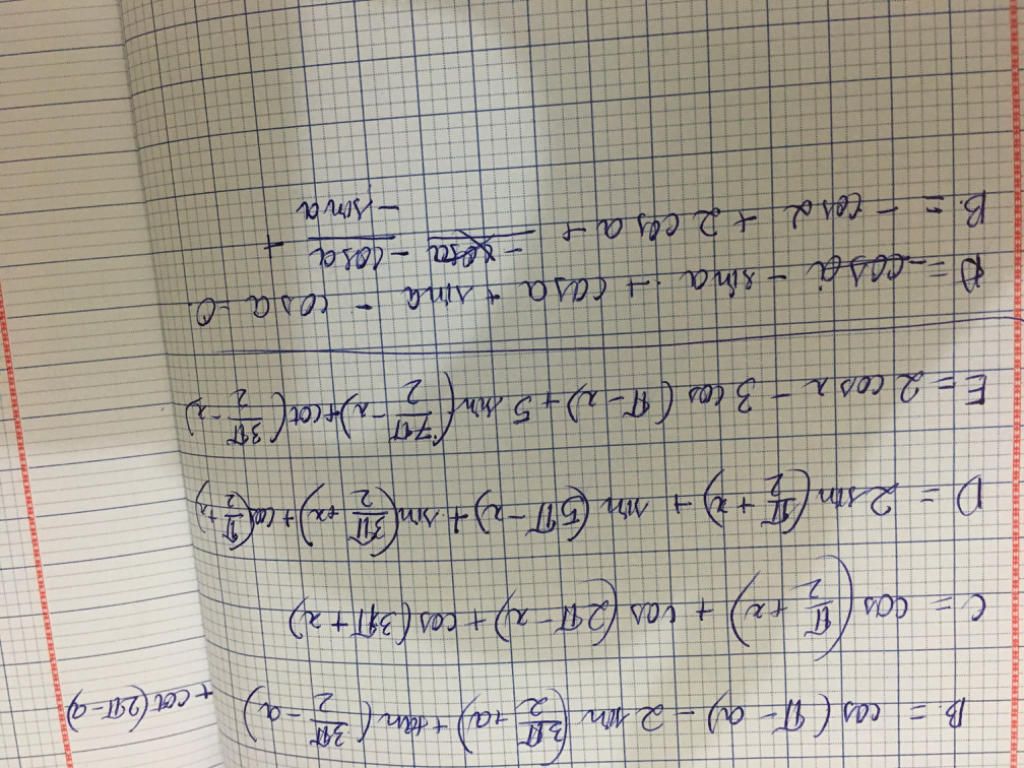 B = cos(π - a) - 2 sin(3π/2 + a) + tan(3π/2 - a) + cot(2π - a)
C = cos(π/2 + x) + cos(2π - x) + cos(3π + x)
D = 2 sin(π/2 + x) + sin(5π - x) + sin(3π/2 + x) + cos(π/2 + x)
E = 2 cos x - 3 cos(π - x) + 5 sin(7π/2 - x) + cot(3π/2 - x)
A = -cos a - sin a + cos a + sin a - cos a = 0
B = -cos a + 2 cos a + -cos a/-sin a +